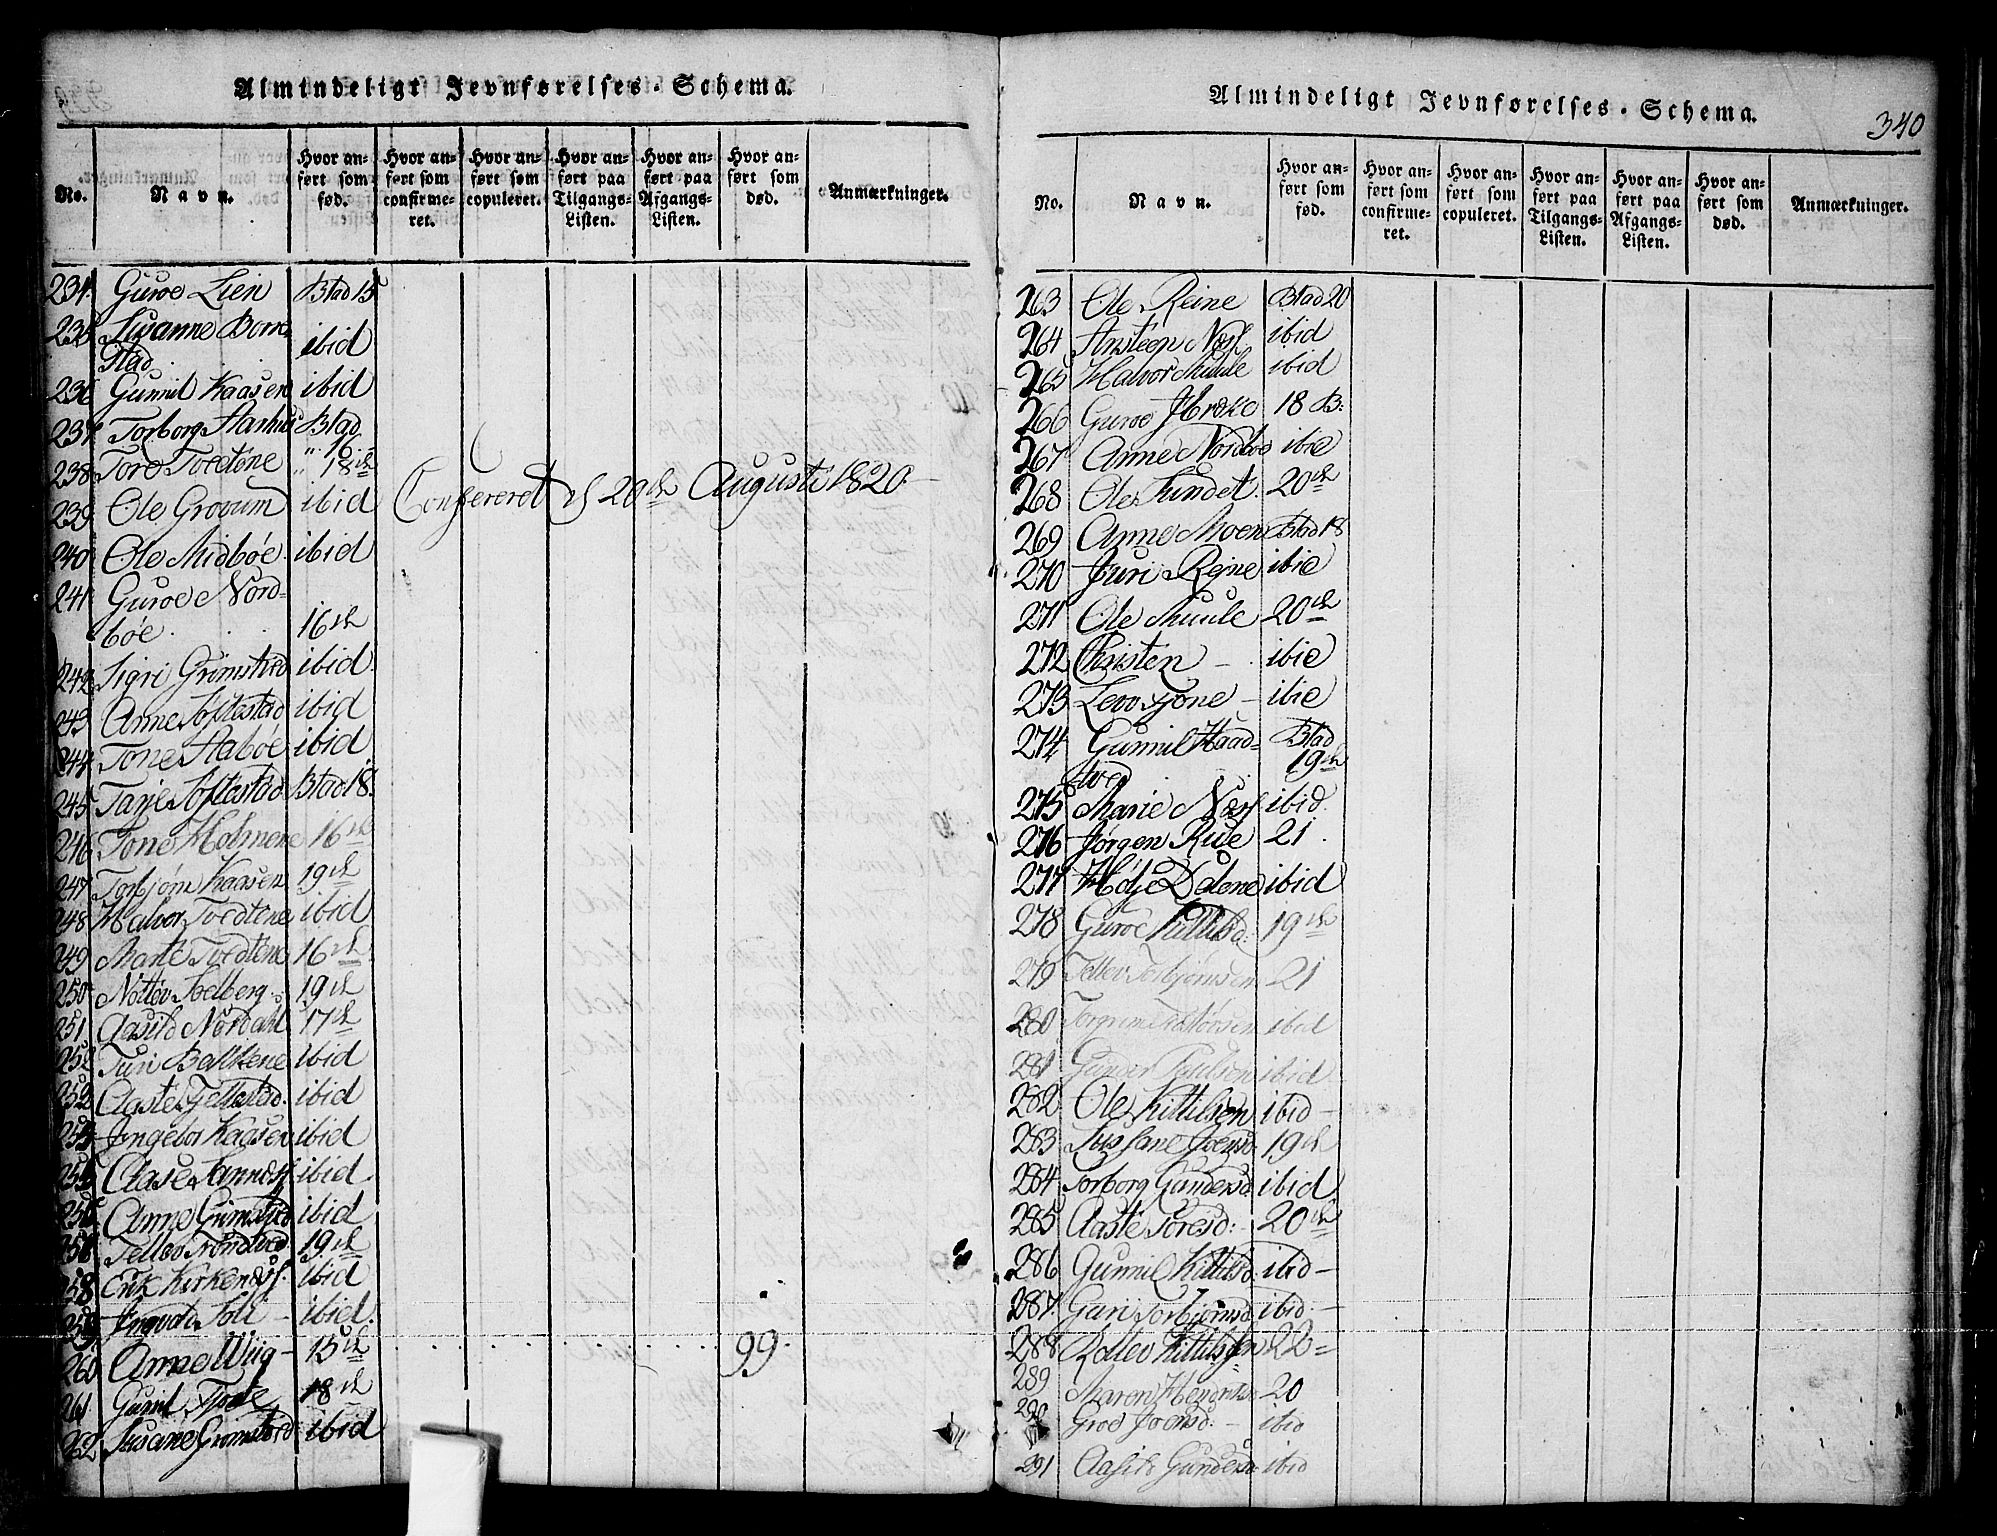 Almindeligt Jevnførelses-Schema.
No.
Navn.
Hvor anført som fød.
Hvor anført som confirmeret.
Hvor anført som copuleret.
Hvor anført paa Tilgangs-Listen.
Hvor anført paa Afgangs-Listen.
Hvor anført som død.
Anmærkninger.
234 Guroe Lien Blad 15
235 Susanne Borrestad ibid
236 Gunnil Kaasen ibid
237 Torborg Aarhus Blad 16
238 Tore Tvedtene " 18de
239 Ole Grovum ibid
Confereret d 20de Augusti 1820.
240 Ole Midbøe ibid
241 Guroe Nord-
bøe. 16de
242 Sigri Grimstved ibid
243 Anne Softestad ibid
244 Tone Habøe ibid
245 Tarje Softestad Blad 18.
246 Tone Holmene 16de
247 Torbjørn Kaasen 19de
248 Halvor Tvedtene ibid
249 Marte Tvedtene 16de
250 Nottov Solberg 19de
251 Aasild Nordahl 17de
252 Turi Balkene ibid
252 Aaste Tjellestad. ibid
Ingebor Kaasen ibid
Aase Sannæss ibid.
Anne Grimstved ibid
Tellev Trondtved 19de
258 Erik Kirkenæss. ibid
Soli ibid.
260 Anne Wiig 15de 99.
261 Gunil 18de
262 Susane Grimstved ibid
Almindeligt Jevnførelses-Schema.
340
No.
Navn.
Hvor anført som fød.
Hvor anført som confirmeret.
Hvor anført som copuleret.
Hvor anført paa Tilgangs-Listen.
Hvor anført paa Afgangs-Listen.
Hvor anført som død.
Anmærkninger.
263 Ole Reine Blad 20
264 Ansteen Næss ibid
265 Halvor Mule ibid
266 Guroe 18 B:
267 Anne Nordboe ibid
268 Ole Sundet. 20de
269 Anne Moen Blad 18
270 Juri Rejne ibid
271 Ole Muule 20de
272 Christen — ibid
273 — ibid
274 Gunnil Haad- Blad
tved 19de
275 Marie Næss ibid.
276 Jørgen Rue 21.
277 Høljе Dalene ibid
278 Guroe Kittilsd: 19de
279 Tellev Torbjørnsen 21
280 Torgrim ibid
281 Gunder Paulsen ibid
282 Ole Kittilsen ibid —
283 Sussane Joensd. 19de
284 Torborg Gundersd ibid
285 Aaste Toresd: 20de
286 Gunnil Kittilsd: ibid —
287. Gari Torbjørnsd ibid. —
288 Rollev Kittilssen 22 =
289 Maren 20
290 Groe Joensd: — ibid
291 Aasild Gundersd ibid